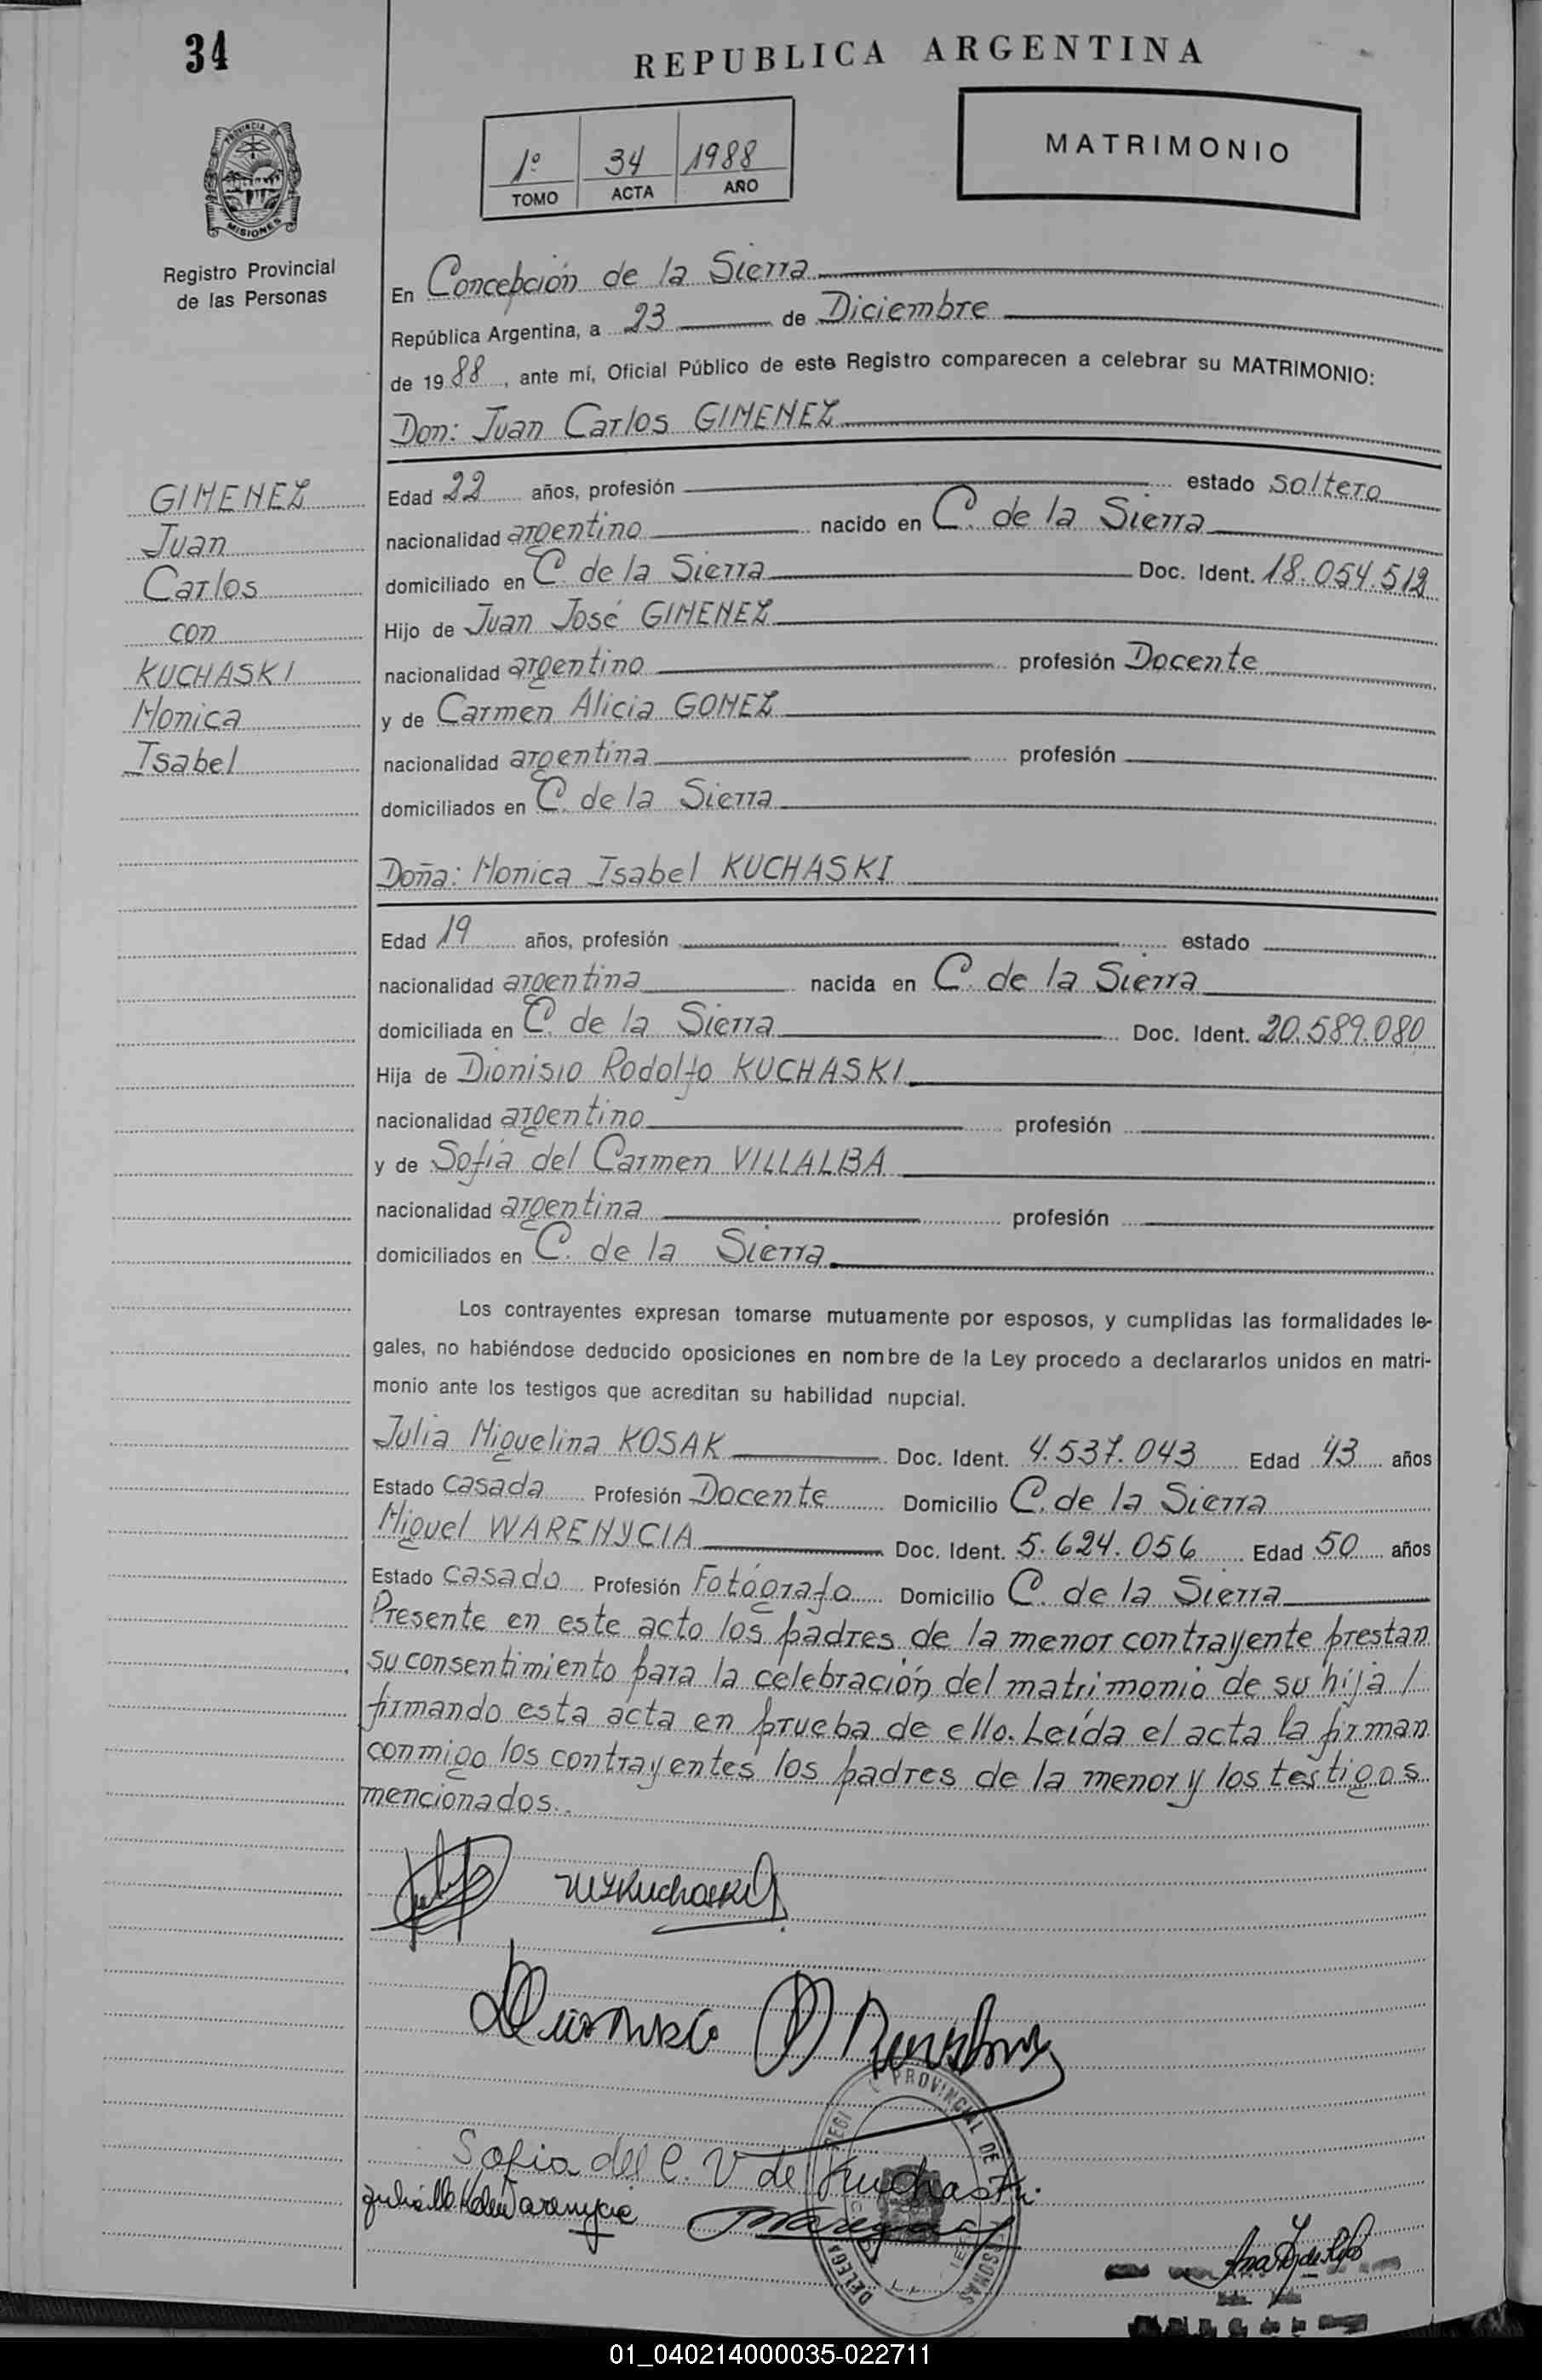 34
REPUBLICA ARGENTINA
1º 34 1988
TOMO ACTA AÑO
MATRIMONIO
PROVINCIA DE
MISIONES
Registro Provincial
de las Personas
En Concepción de la Sierra
República Argentina, a 23 de Diciembre
de 1988, ante mí, Oficial Público de este Registro comparecen a celebrar su MATRIMONIO:
Don: Juan Carlos GIMENEZ
GIMENEZ
Juan
Carlos
con
KUCHASKI
Monica
Isabel
Edad 22 años, profesión estado soltero
nacionalidad argentino nacido en C. de la Sierra
domiciliado en C. de la Sierra Doc. Ident. 18.054.512
Hijo de Juan José GIMENEZ
nacionalidad argentino profesión Docente
y de Carmen Alicia GOMEZ
nacionalidad argentina profesión
domiciliados en C. de la Sierra
Doña: Monica Isabel KUCHASKI
Edad 19 años, profesión estado
nacionalidad argentina nacida en C. de la Sierra
domiciliada en C. de la Sierra Doc. Ident. 20.589.080
Hija de Dionisio Rodolfo KUCHASKI
nacionalidad argentino profesión
y de Sofia del Carmen VILLALBA
nacionalidad argentina profesión
domiciliados en C. de la Sierra
Los contrayentes expresan tomarse mutuamente por esposos, y cumplidas las formalidades le-
gales, no habiéndose deducido oposiciones en nombre de la Ley procedo a declararlos unidos en matri-
monio ante los testigos que acreditan su habilidad nupcial.
Julia Miguelina KOSAK Doc. Ident. 4.537.043 Edad 43 años
Estado casada Profesión Docente Domicilio C. de la Sierra
Miguel WARENYCIA Doc. Ident. 5.624.056 Edad 50 años
Estado casado Profesión Fotógrafo Domicilio C. de la Sierra
Presente en este acto los padres de la menor contrayente prestan
su consentimiento para la celebración del matrimonio de su hija /
firmando esta acta en prueba de ello. Leída el acta la firman
conmigo los contrayentes los padres de la menor y los testigos
mencionados.
MYKuchaski
Dionisio R Kuchaski
PROVINCIAL DE
Sofia del C. V de Kuchaski
01_040214000035-022711